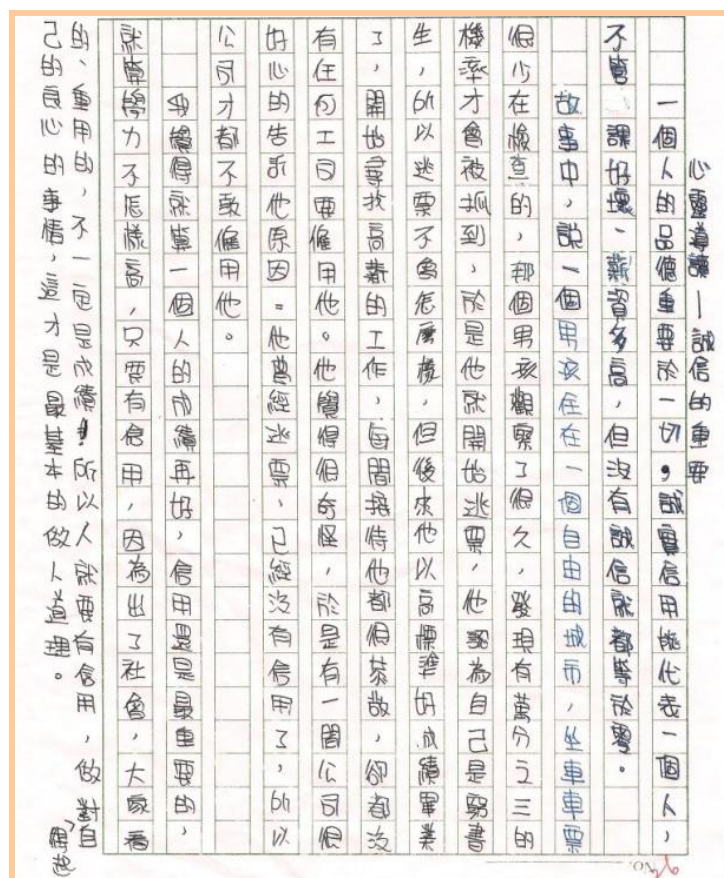 心靈導讀—誠信的重要
一個人的品德重要於一切,誠實信用能代表一個人,
不管課好壞、薪資多高,但沒有誠信就都等於零。
故事中,說一個男孩住在一個自由的城市,坐車車票
很少在檢查的,那個男孩觀察了很久,發現有萬分之三的
機率才會被抓到,於是他就開始逃票,他認為自己是窮書
生,所以逃票不會怎麼樣,但後來他以高標準好成績畢業
了,開始尋找高薪的工作,每間接待他都很恭敬,卻都沒
有任何工司要僱用他。他覺得很奇怪,於是有一間公司很
好心的告訴他原因。他曾經逃票,已經沒有信用了,所以
公司才都不敢僱用他。
我覺得就算一個人的成績再好,信用還是最重要的,
就算學力不怎樣高,只要有信用,因為出了社會,大家看
的、重用的,不一定是成績!所以人就要有信用,做對
自己的良心的事情,這才是最基本的做人道理。
得起
No.